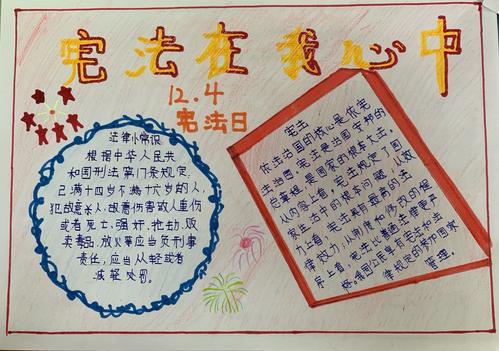 宪法在我心中
12.4
宪法日
法律小常识
根据中华人民共
和国刑法第17条规定,
已满十四岁不满十六岁的人,
犯故意杀人、故意伤害致人重伤
或者死亡、强奸、抢劫、贩
卖毒品、放火等应当负刑事
责任,应当从轻或者
减轻处罚。
宪法
依法治国的核心是依宪
法治国。宪法是治国安邦的
总章程,是国家的根本大法。
从内容上看,宪法规定了国
家生活中的根本问题,从效
力上看,宪法具有最高的法
律效力,从制度和修改的程
序上看,宪法比普通法律更严
格。我国公民享有宪法和法
律规定的
和国家
管理。